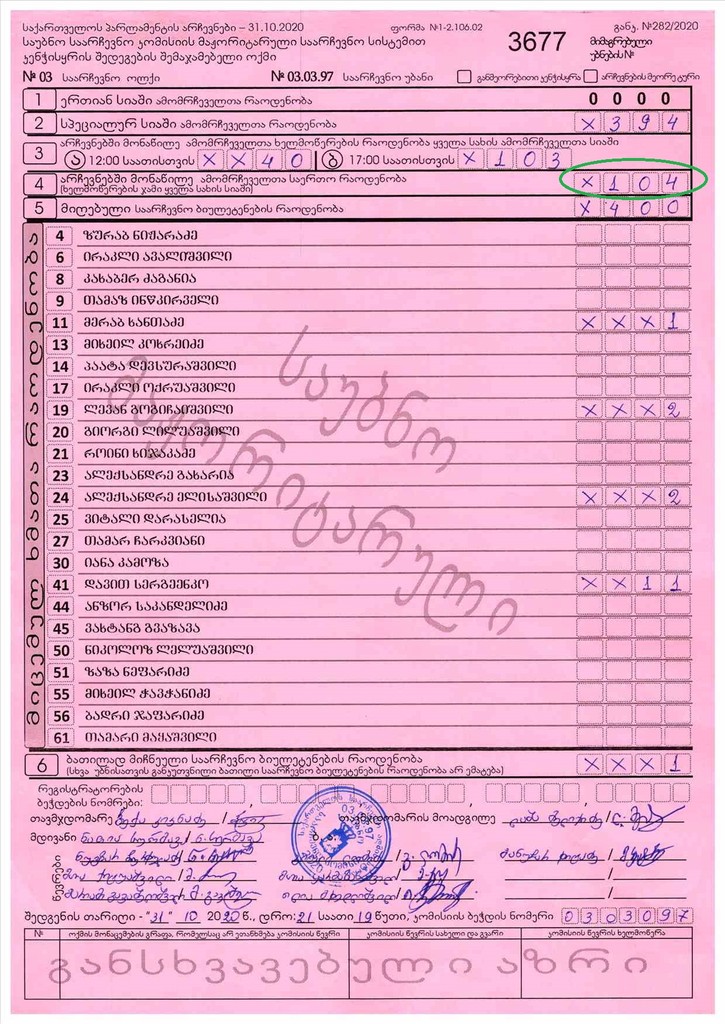 საქართველოს პარლამენტის არჩევნები – 31.10.2020 ფორმა №1-2.106.02 განკ. №282/2020
საუბნო საარჩევნო კომისიის მაჟორიტარული საარჩევნო სისტემით 3677 მიმაგრებული
კენჭისყრის შედეგების შემაჯამებელი ოქმი უბნების №
№ 03 საარჩევნო ოლქი № 03.03.97 საარჩევნო უბანი განმეორებითი კენჭისყრა არჩევნების მეორე ტური
1 ერთიან სიაში ამომრჩეველთა რაოდენობა 0 0 0 0
2 სპეციალურ სიაში ამომრჩეველთა რაოდენობა X 3 9 4
არჩევნებში მონაწილე ამომრჩეველთა ხელმოწერების რაოდენობა ყველა სახის ამომრჩეველთა სიაში
3 ა 12:00 საათისთვის X X 4 0 ბ 17:00 საათისთვის X 1 0 3
4 არჩევნებში მონაწილე ამომრჩეველთა საერთო რაოდენობა X 1 0 4
(ხელმოწერების ჯამი ყველა სახის სიაში)
5 მიღებული საარჩევნო ბიულეტენების რაოდენობა X 4 0 0
მიცემულ ხმათა რაოდენობა
4 ზურაბ ნიჟარაძე
6 ირაკლი ავალიშვილი
8 კახაბერ ძაგანია
9 თამაზ ინწკირველი
11 მერაბ ხანთაძე X X X 1
13 მიხეილ კოხრეიძე
14 პაატა დევსურაშვილი
17 ირაკლი ოქრუაშვილი
19 ლევან გოგიჩაიშვილი X X X 2
20 გიორგი ლილუაშვილი
21 როინი ხიჯაკაძე
23 ალექსანდრე გახარია
24 ალექსანდრე ელისაშვილი X X X 2
25 ვიტალი დარასელია
27 თამარ ჩარკვიანი
30 იანა კამოზა
41 დავით სერგეენკო X X 1 1
44 ანზორ საპანდელიძე
45 ვახტანგ გვაზავა
50 ნიკოლოზ ლელუაშვილი
51 ზაზა ნეფარიძე
55 მიხეილ ჭავჭანიძე
56 ბადრი ჯაფარიძე
61 თამარი მაყაშვილი
საუბნო
მაჟორიტარული
6 ბათილად მიჩნეული საარჩევნო ბიულეტენების რაოდენობა X X X 1
(სხვა უბნისათვის განკუთვნილი ბათილი საარჩევნო ბიულეტენების რაოდენობა არ ემატება)
რეგისტრატორების
ბეჭდების ნომრები:
თავმჯდომარე თავმჯდომარის მოადგილე
მდივანი
წევრები
შედგენის თარიღი - "31" 10 2020 წ., დრო: 21 საათი 19 წუთი, კომისიის ბეჭდის ნომერი 0 3 0 3 0 9 7
№ ოქმის მონაცემების გრაფა, რომელსაც არ ეთანხმება კომისიის წევრი კომისიის წევრის სახელი და გვარი კომისიის წევრის ხელმოწერა
განსხვავებული აზრი